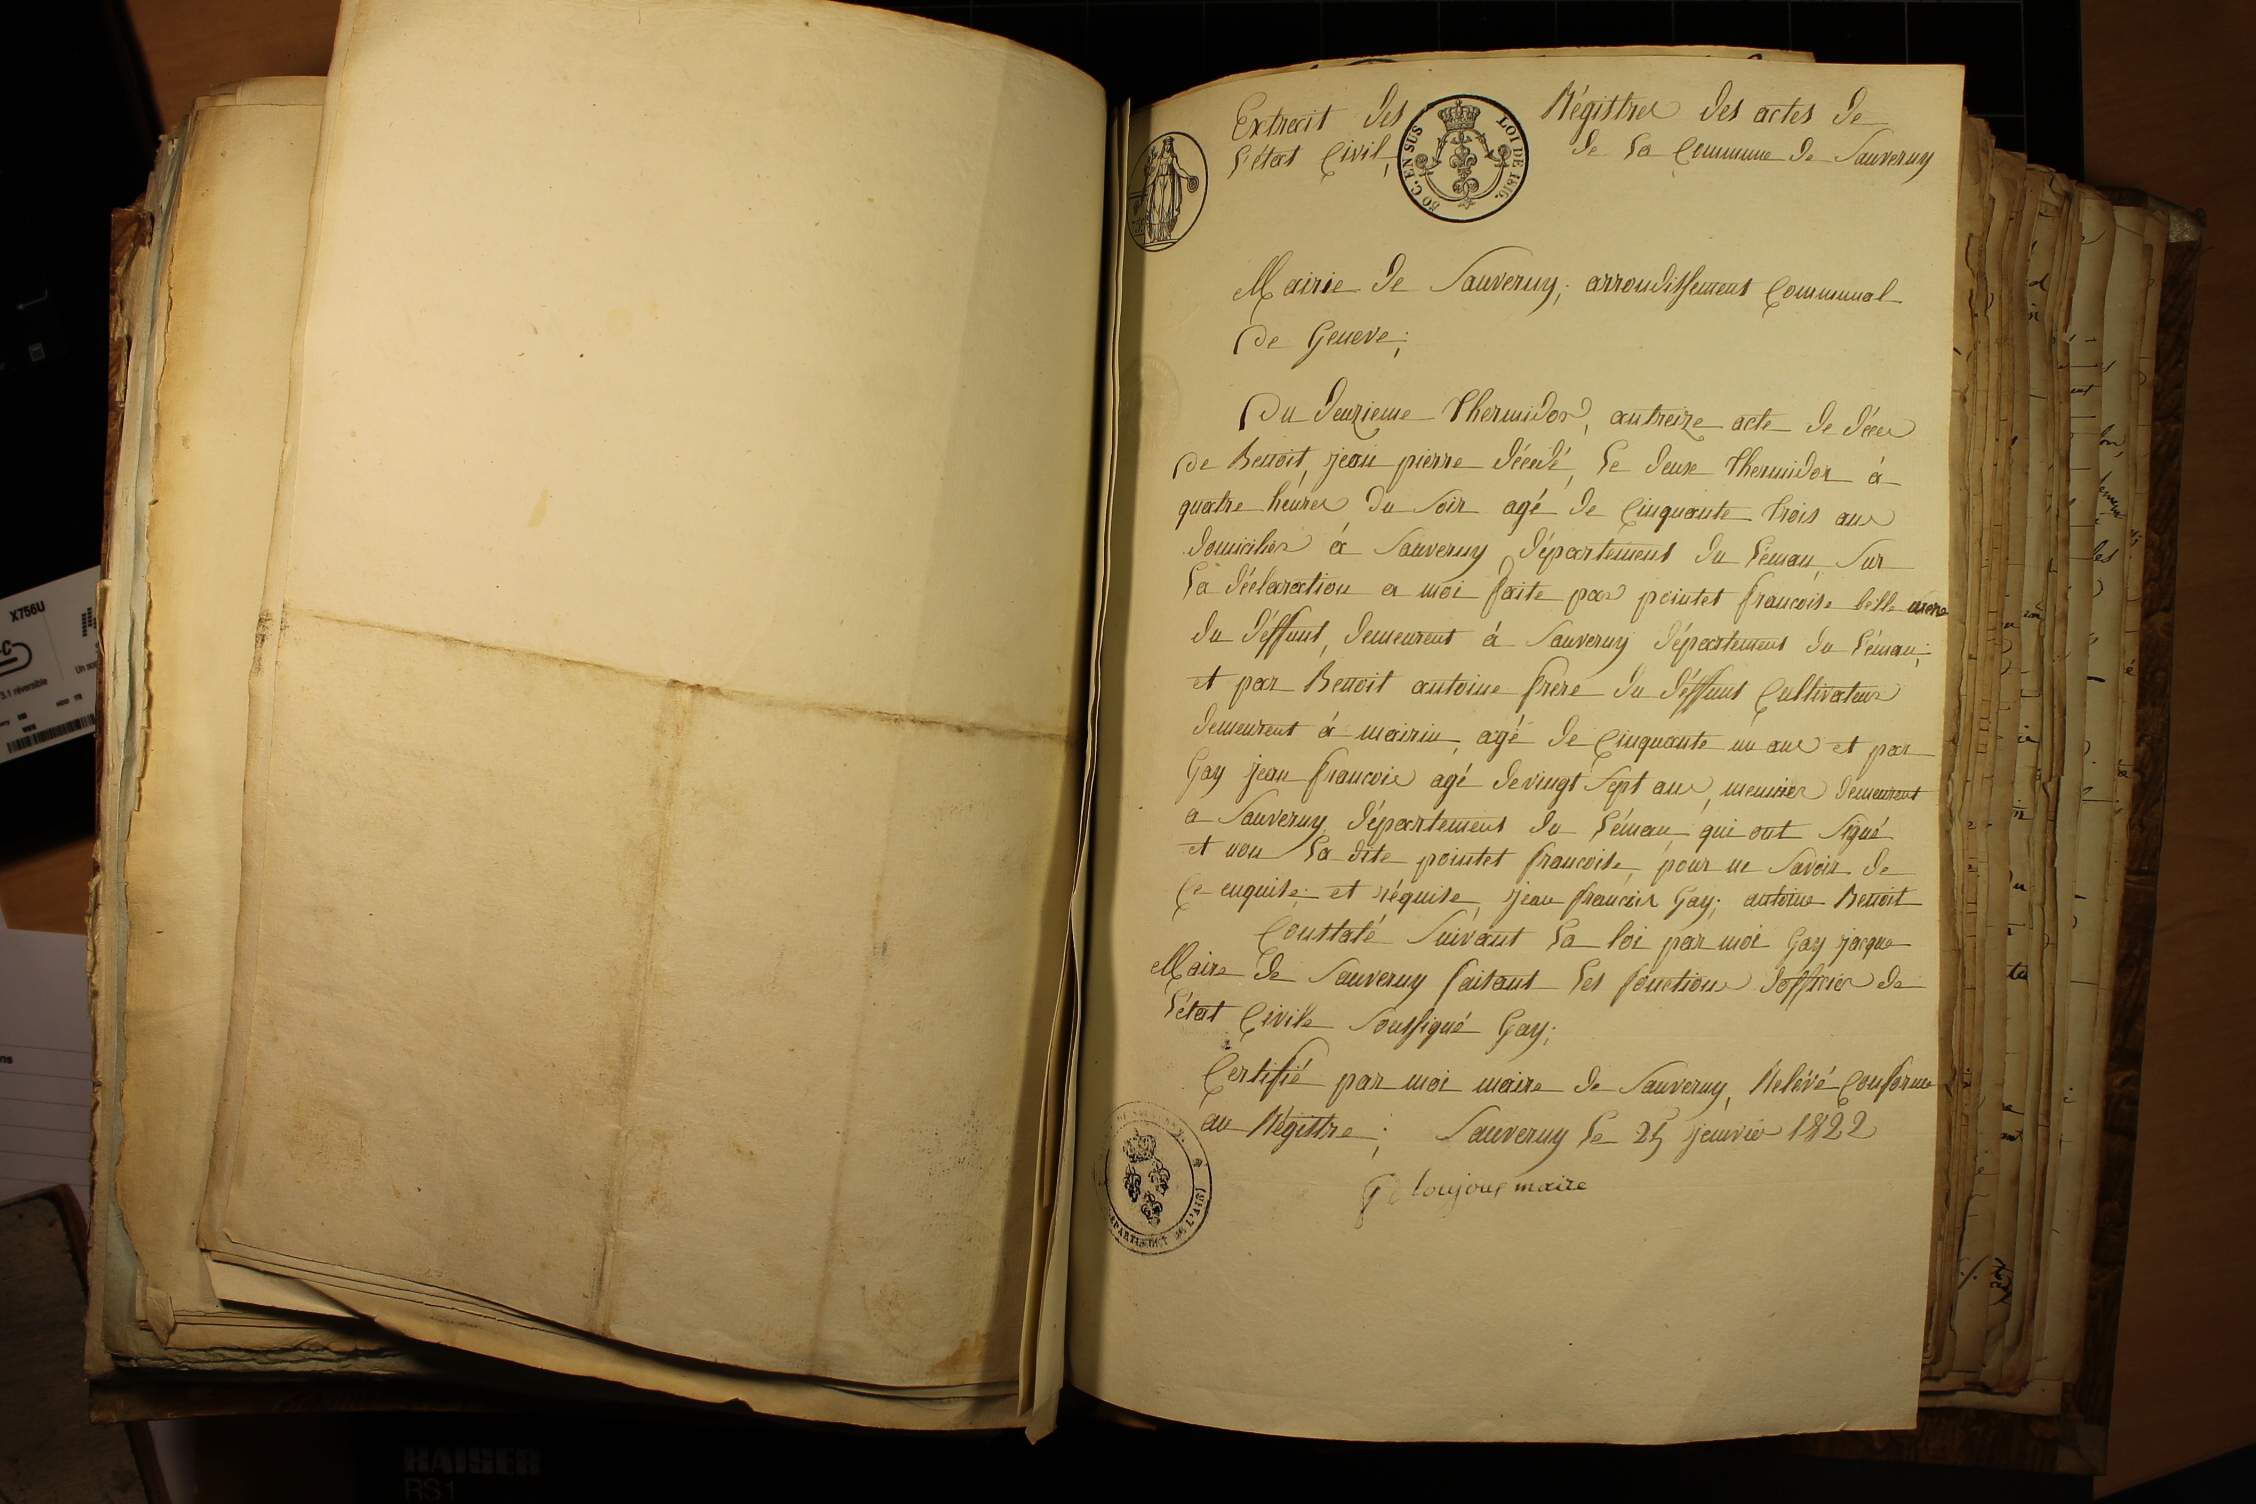 Extrait des Régistres des actes de
L'état Civil, de La Commune de Sauverny
80 C. EN SUS LOI DE 1816.
Mairie de Sauverny; arrondissement Communal
De Geneve;
Du deuxieme Thermidor, an treize acte de déces
De Benoit, jean pierre décedé, Le deux Thermidor à
quatre heures du Soir agé de Cinquante trois ans
domicilier à Sauverny département du Léman, Sur
La déclaration a moi faite par pointet francoise belle mere
du déffunt, demeurent à Sauverny département du Léman;
et par Benoit antoine frere du déffunt Cultivateur
demeurent á mairin, agé de Cinquante un ans et par
Gay jean francois agé de vingt Sept ans, meunier demeurent
a Sauverny département du Léman, qui ont Signé
et non La dite pointet francoise, pour ne Savoir de
Ce enquise; et réquise, jean francois Gay; antoine Benoit
Constaté Suivant La loi par moi Gay jacque
Maire de Sauverny faisant Les fonctions dofficier de
L'état Civile Soussigné Gay;
Certifié par moi maire de Sauverny, Relévé Conforme
au Régistre; Sauverny Le 25 jenvier 1822
toujous maire
DE L'AIN
X756U
3.1 réversible
KAISER
RS1